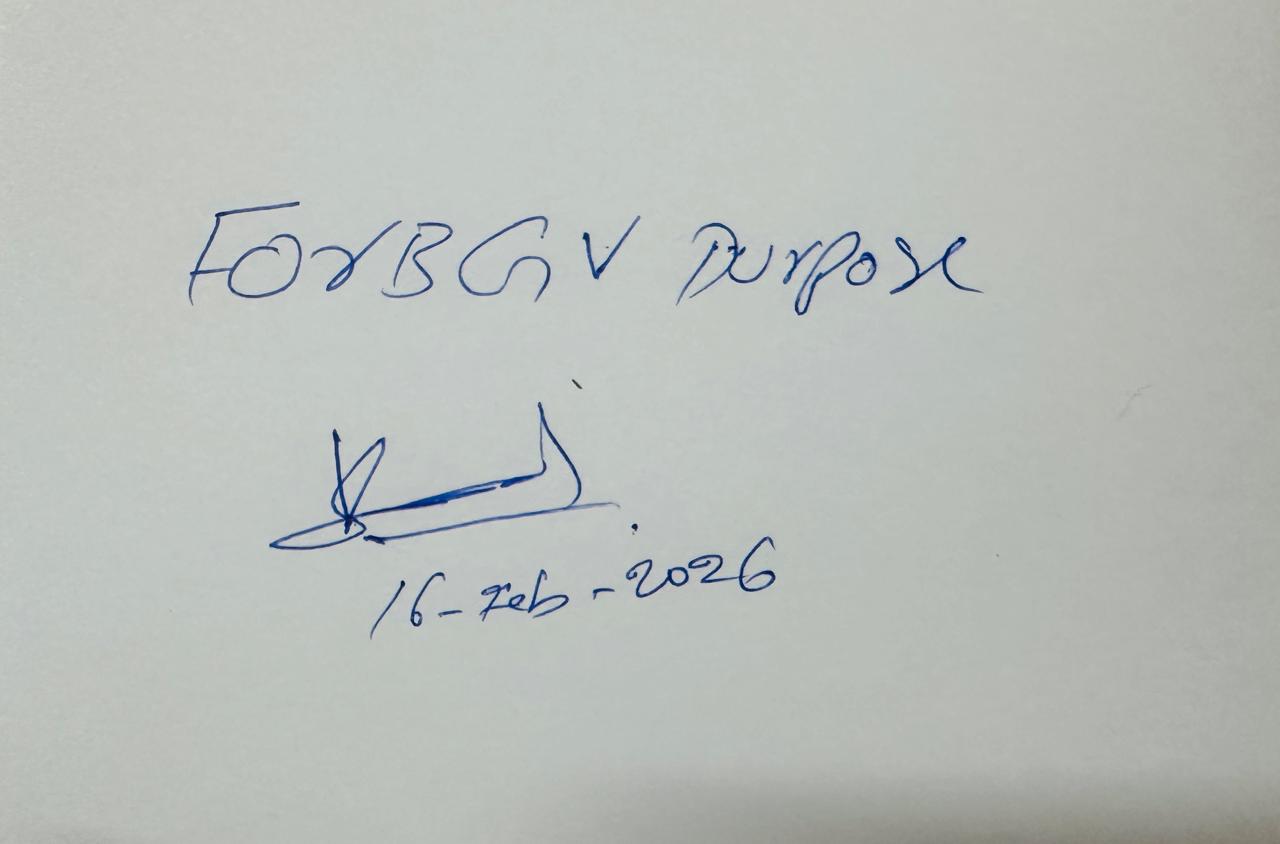 For BGV Purpose
16-Feb-2026